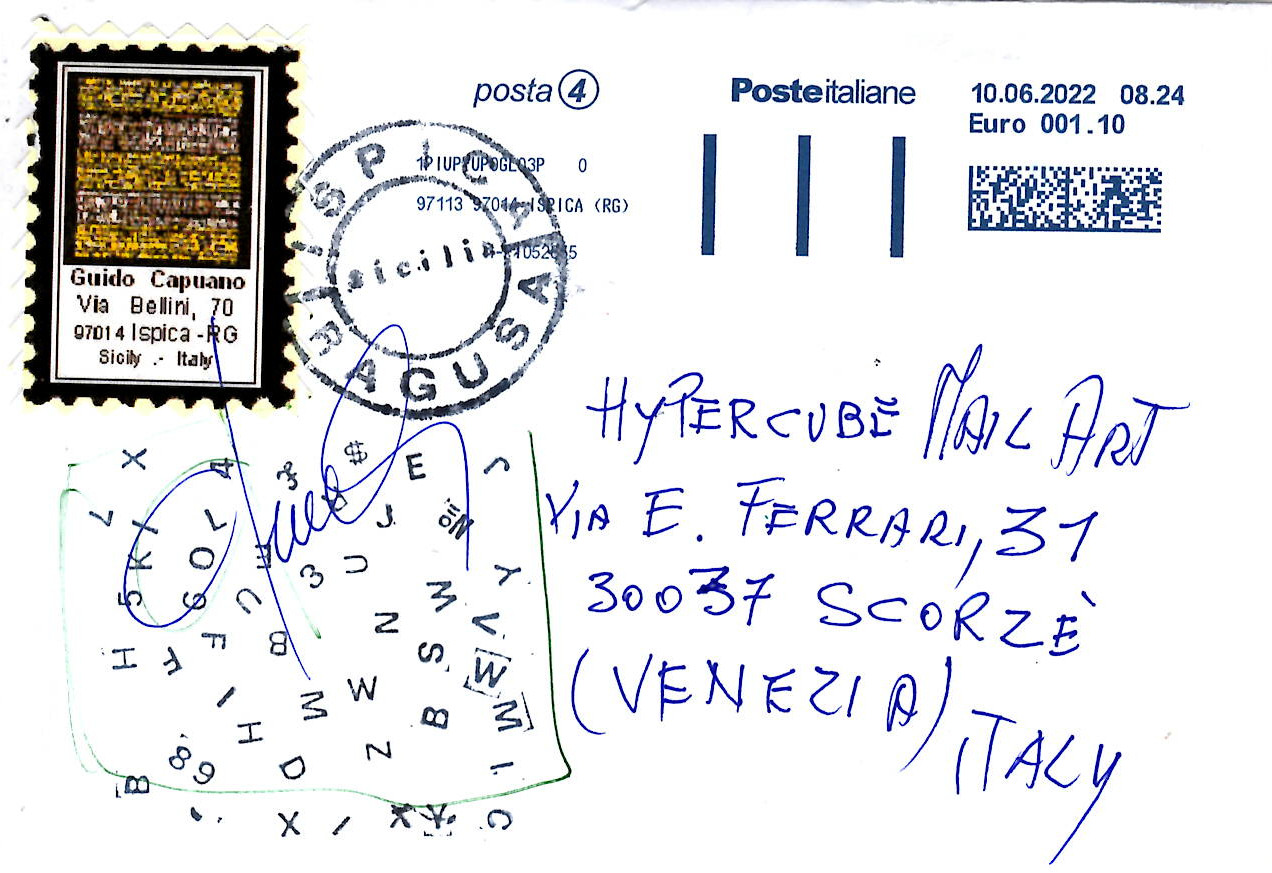 posta 4
Posteitaliane
10.06.2022 08.24
Euro 001.10
97113 97014 ISPICA (RG)
ISPICA
sicilia
RAGUSA
Guido Capuano
Via Bellini, 70
97014 Ispica - RG
Sicily .- Italy
HYPERCUBE MAIL ART
VIA E. FERRARI, 31
30037 SCORZÈ
(VENEZIA)
ITALY
X 4 $ E
L K I L J
5 6 O E 3 U Y
C N M V
H F B S W
I M W B M
H D N I
B 89
X I C